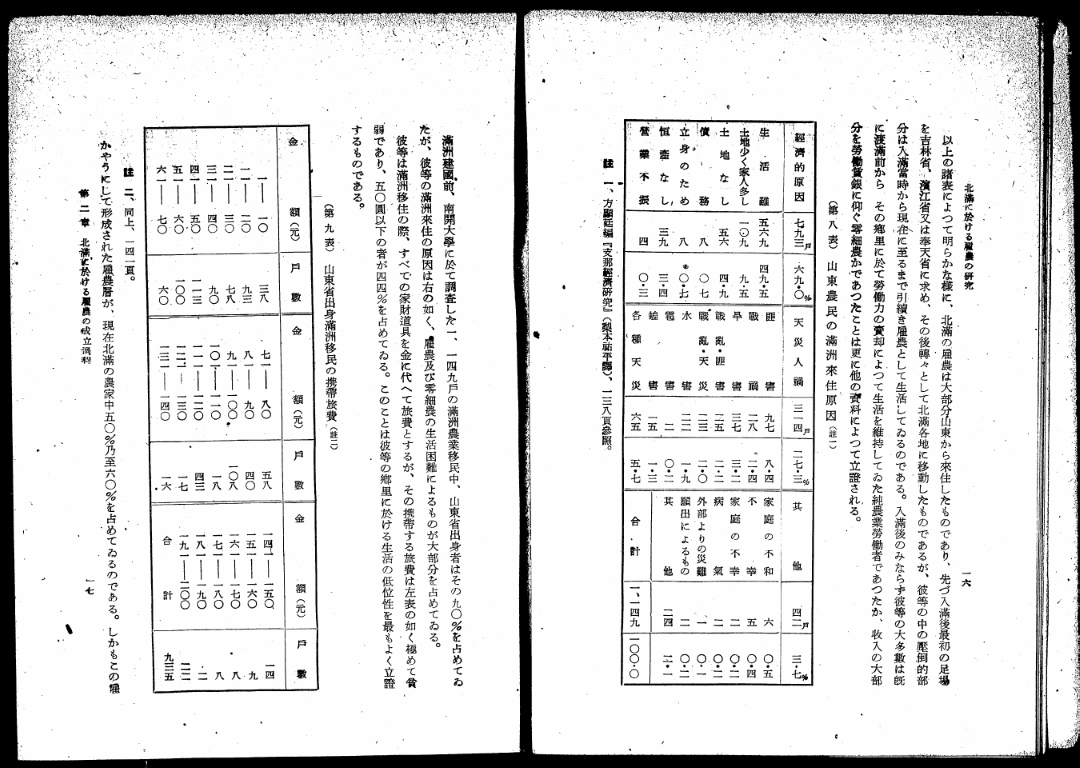 北滿に於ける雇農の研究
一六
以上の諸表によつて明らかな樣に、北滿の雇農は大部分山東から來住したものであり、先づ入滿後最初の足場
を吉林省、濱江省又は奉天省に求め、その後轉々として北滿各地に移動したものであるが、彼等の中の壓倒的部
分は入滿當時から現在に至るまで引續き雇農として生活してゐるのである。入滿後のみならず彼等の大多數は旣
に渡滿前から その鄕里に於て勞働力の賣却によつて生活を維持してゐた純農業勞働者であつたか、收入の大部
分を勞働賃銀に仰ぐ零細農かであつたことは更に他の資料によつて立證される。
(第八表) 山東農民の滿洲來住原因(註一)
經濟的原因 七九三戶 六九・〇%
生活難 五六九 四九・五
土地少く家人多し 一〇九 九・五
土地なし 五六 四・九
債務 八 〇・七
立身のため 八 〇・七
恒產なし 三九 三・四
營業不振 四 〇・三
天災人禍 三一四戶 二七・三%
匪害 九七 八・四
兵禍 二八 二・四
旱害 三七 三・二
戰亂・匪害 二五 二・二
戰亂・天災 二三 二・〇
水害 二二 一・九
雹害 二 〇・二
蝗害 一五 一・三
各種天災 六五 五・七
其他 四二戶 三・七%
家庭の不和 六 〇・五
不幸 五 〇・四
家庭の不幸 二 〇・二
病氣 二 〇・二
外部よりの災難 一 〇・一
願出によるもの 二 〇・二
其他 二四 二・一
合計 一、一四九 一〇〇・〇
註 一、方顯廷編『支那經濟硏究』(梨本祐平譯)、一三八頁參照。
滿洲建國前、南開大學に於て調査した一、一四九戶の滿洲農業移民中、山東省出身者はその九〇%を占めてゐ
たが、彼等の滿洲來住の原因は右の如く、雇農及び零細農の生活困難によるものが大部分を占めてゐる。
彼等は滿洲移住の際、すべての家財道具を金に代へて旅費とするが、その携帶する旅費は左表の如く極めて貧
弱であり、五〇圓以下の者が四四%を占めてゐる。このことは彼等の鄕里に於ける生活の低位性を最もよく立證
するものである。
(第九表) 山東省出身滿洲移民の携帶旅費(註二)
金額(元) 戶數
一——一〇 三八
一一——二〇 九三
二一——三〇 七八
三一——四〇 九〇
四一——五〇 一一三
五一——六〇 一〇〇
六一——七〇 六〇
金額(元) 戶數
七一——八〇 五八
八一——九〇 四〇
九一——一〇〇 一〇八
一〇一——一一〇 一八
一一一——一二〇 四三
一二一——一三〇 一七
一三一——一四〇 一六
金額(元) 戶數
一四一——一五〇 一四
一五一——一六〇 九
一六一——一七〇 八
一七一——一八〇 八
一八一——一九〇 二
一九一——二〇〇 二二
合計 九三五
註 二、同上、一四一頁。
かやうにして形成された雇農層が、現在北滿の農家中五〇%乃至六〇%を占めてゐるのである。しかもこの雇
第二章 北滿に於ける雇農の成立過程
一七